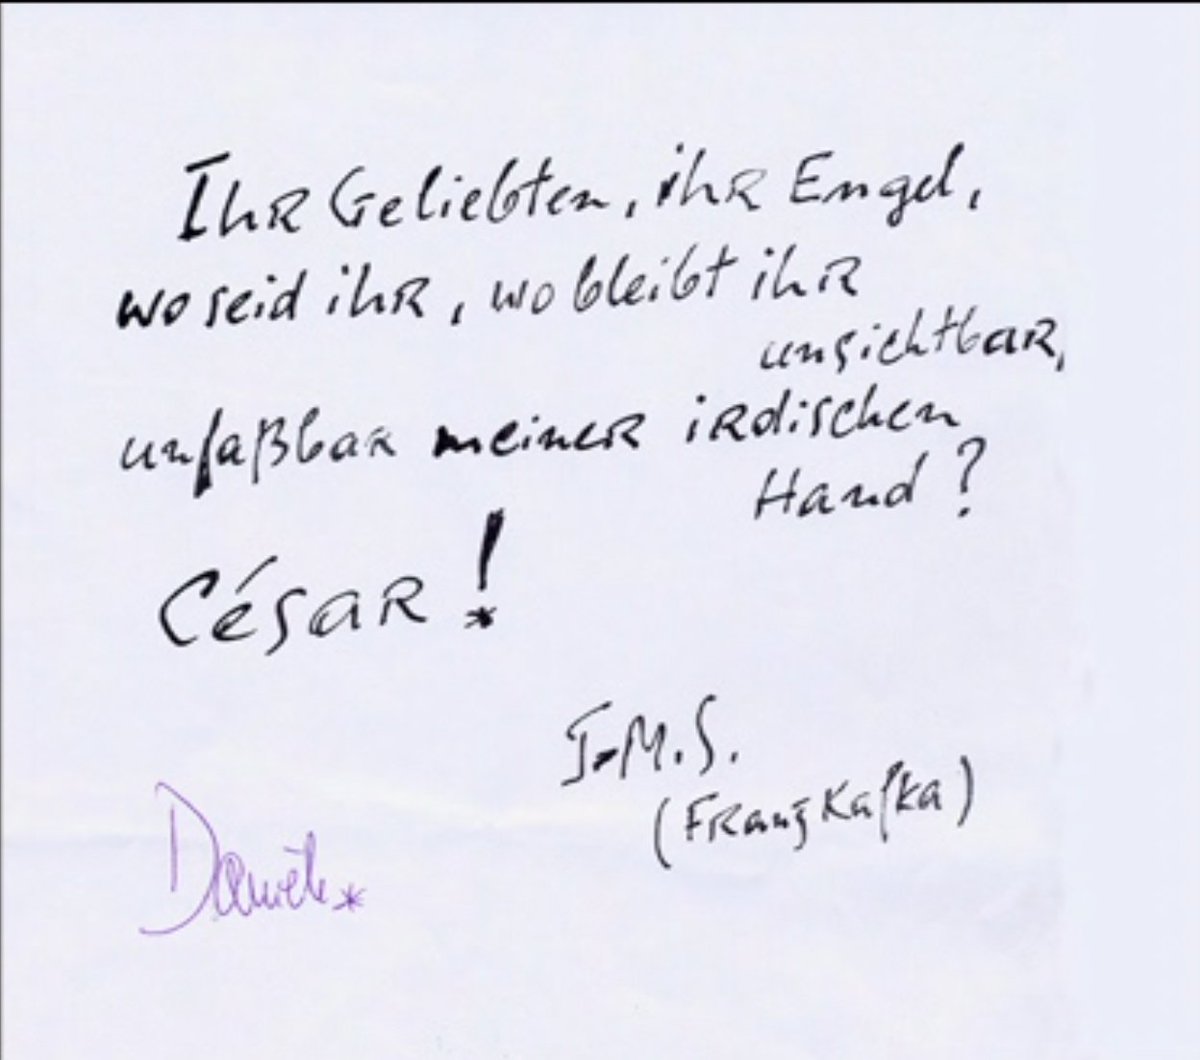 Ihr Geliebten, ihr Engel,
wo seid ihr, wo bleibt ihr
unsichtbar,
unfaßbar meiner irdischen
Hand?
César!
J.M.S.
(Franz Kafka)